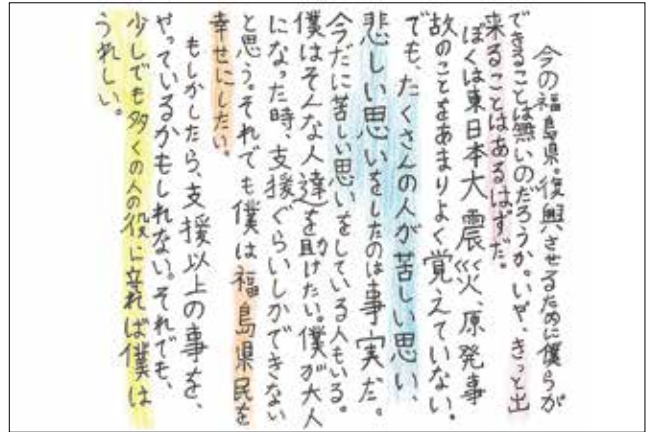 今の福島県。復興させるために僕らが
できることは無いのだろうか。いや、きっと出
来ることはあるはずだ。
ぼくは東日本大震災、原発事
故のことをあまりよく覚えていない。
でも、たくさんの人が苦しい思い、
悲しい思いをしたのは事実だ。
今だに苦しい思いをしている人もいる。
僕はそんな人達を助けたい。僕が大人
になった時、支援ぐらいしかできない
と思う。それでも僕は福島県民を
幸せにしたい。
もしかしたら、支援以上の事を、
やっているかもしれない。それでも、
少しでも多くの人の役に立れば僕は
うれしい。